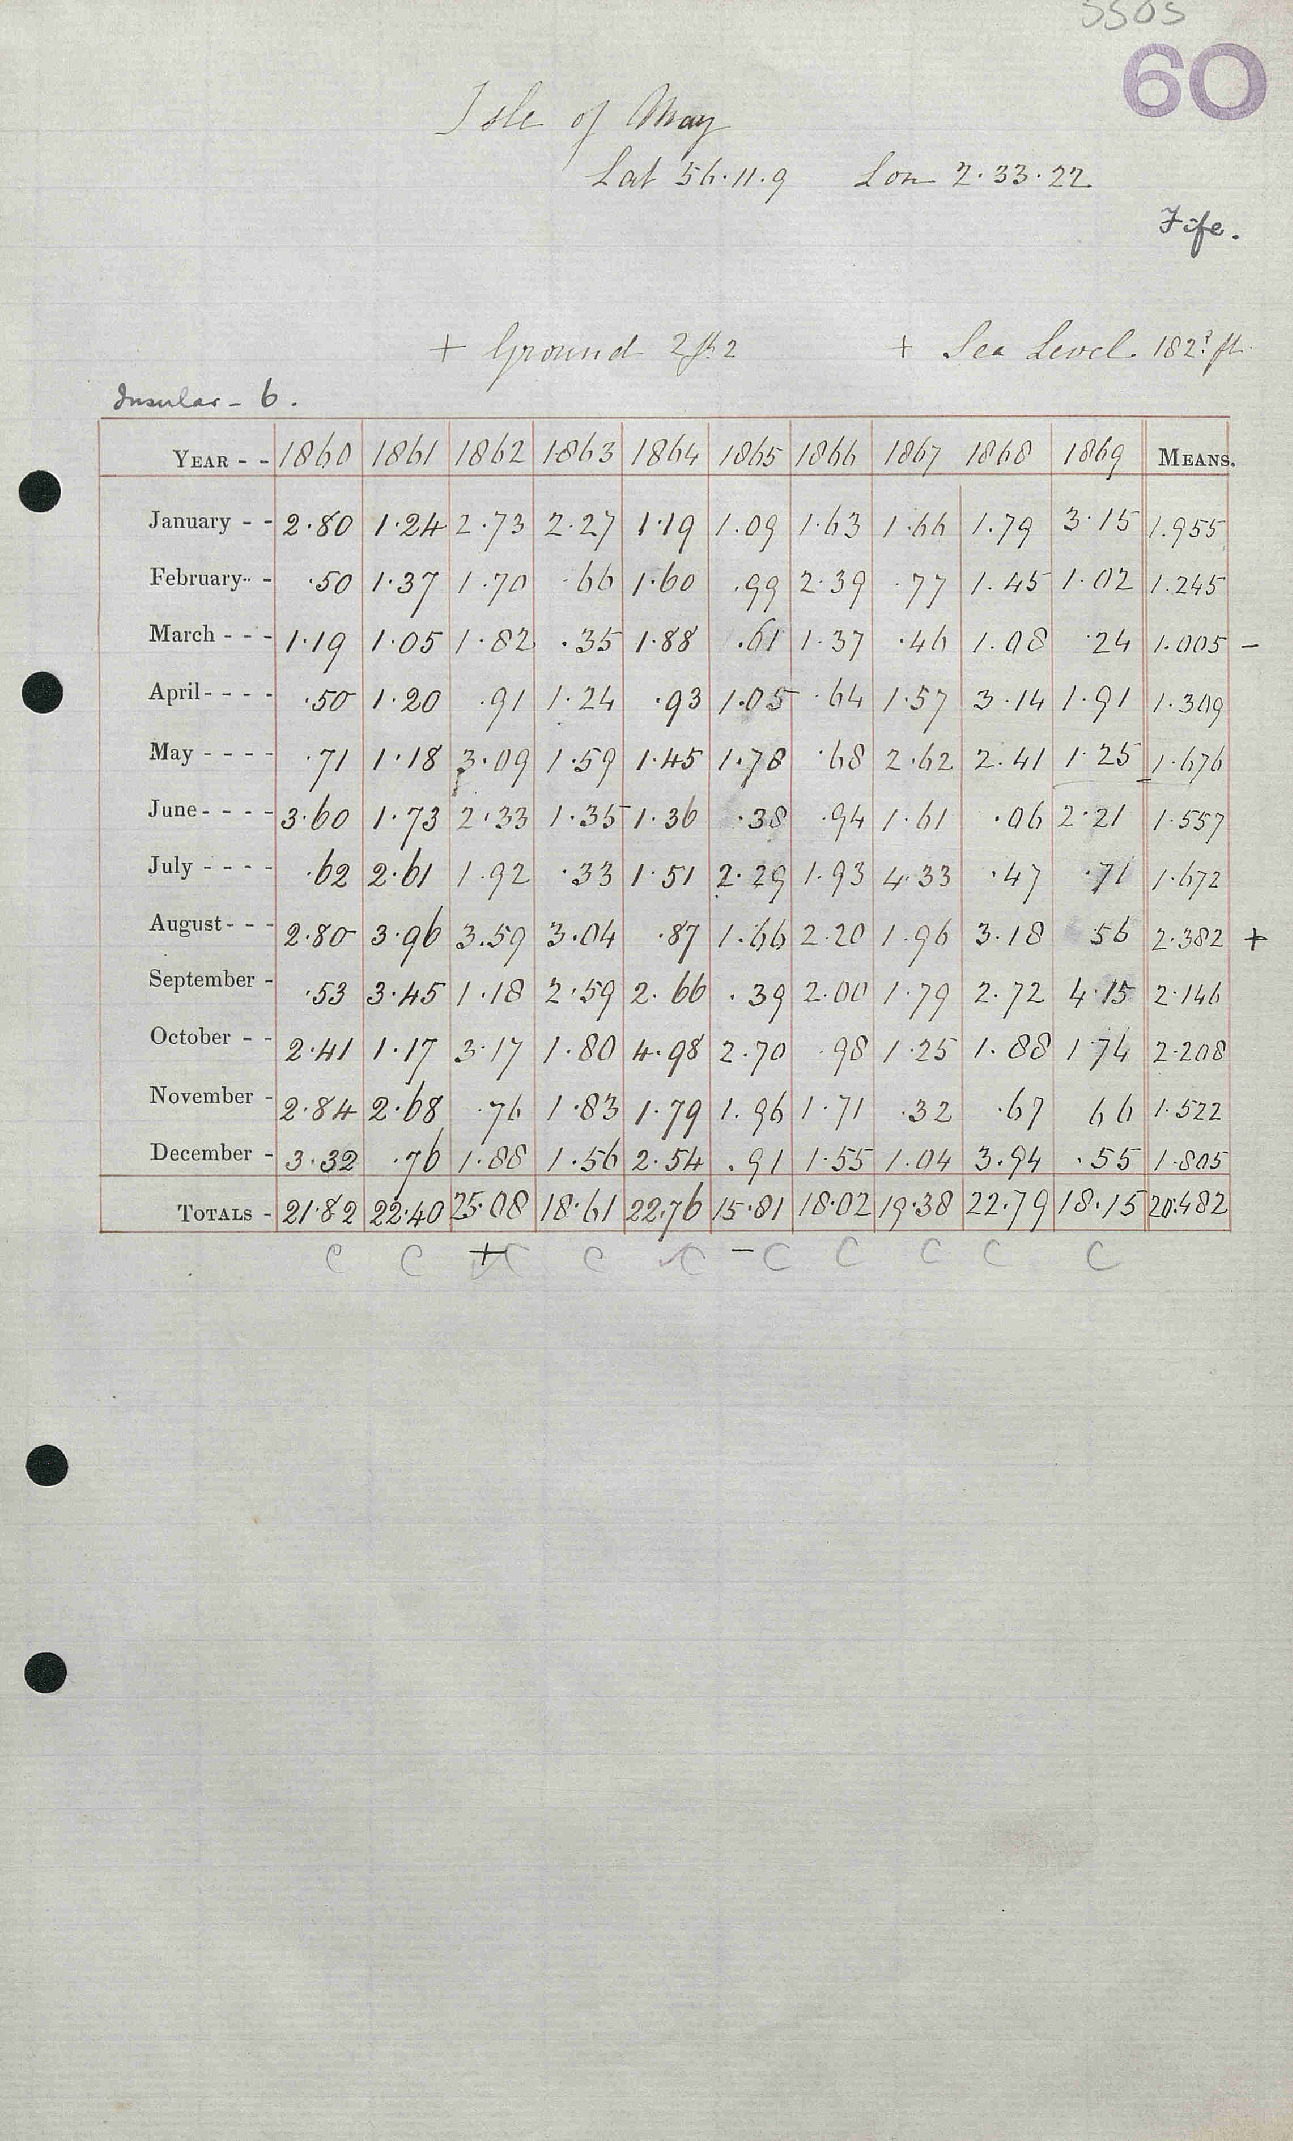 5505
60
Isle of May
Lat 56.11.9 Lon 2.33.22
Fife.
+ Ground 2 ft 2 + Sea Level. 182? ft
Insular - 6.
YEAR - - 1860 1861 1862 1863 1864 1865 1866 1867 1868 1869 MEANS.
January - - 2.80 1.24 2.73 2.27 1.19 1.09 1.63 1.66 1.79 3.15 1.955
February - - .50 1.37 1.70 .66 1.60 .99 2.39 .77 1.45 1.02 1.245
March - - - 1.19 1.05 1.82 .35 1.88 .61 1.37 .46 1.08 .24 1.005 -
April - - - - .50 1.20 .91 1.24 .93 1.05 .64 1.57 3.14 1.91 1.309
May - - - - .71 1.18 3.09 1.59 1.45 1.78 .68 2.62 2.41 1.25 1.676
June - - - - 3.60 1.73 2.33 1.35 1.36 .38 .94 1.61 .06 2.21 1.557
July - - - - .62 2.61 1.92 .33 1.51 2.29 1.93 4.33 .47 .71 1.672
August - - - 2.80 3.96 3.59 3.04 .87 1.66 2.20 1.96 3.18 56 2.382 +
September - .53 3.45 1.18 2.59 2.66 .39 2.00 1.79 2.72 4.15 2.146
October - - 2.41 1.17 3.17 1.80 4.98 2.70 .98 1.25 1.88 1.74 2.208
November - 2.84 2.68 .76 1.83 1.79 1.96 1.71 .32 .67 66 1.522
December - 3.32 .76 1.88 1.56 2.54 .91 1.55 1.04 3.94 .55 1.805
TOTALS - 21.82 22.40 25.08 18.61 22.76 15.81 18.02 19.38 22.79 18.15 20.482
C C + C C C - C C C C C